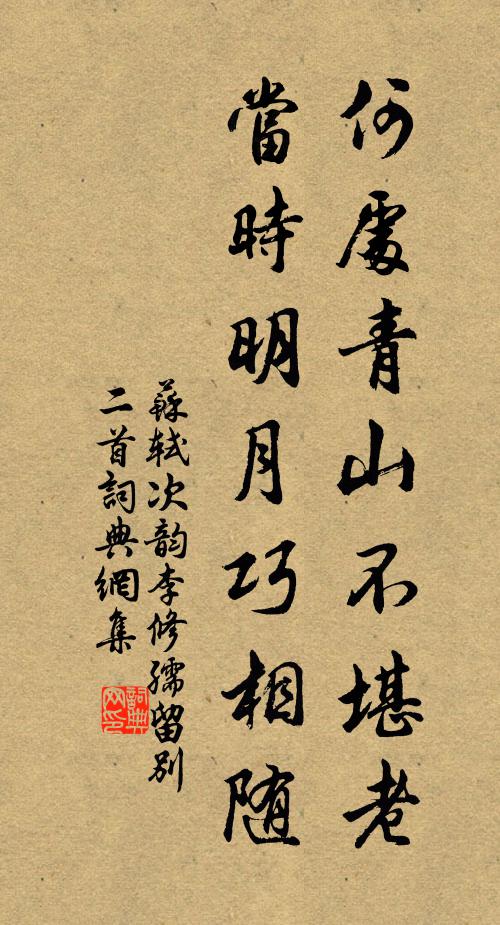 何處青山不堪老
當時明月巧相随
蘇軾次韵李修孺留别
二首詞典網集
詞典
网印